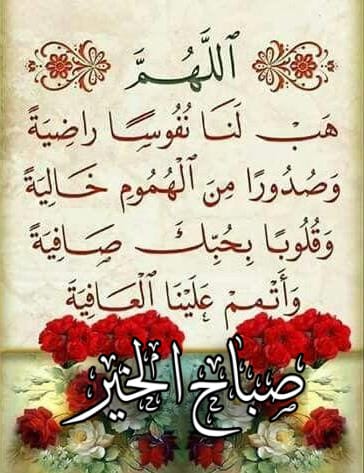 اَللَّهُمَّ
هَبْ لَنَا نُفُوسًا رَاضِيَةً
وَصُدُورًا مِنَ الْهُمُومِ خَالِيَةً
وَقُلُوبًا بِحُبِّكَ صَافِيَةً
وَأَتْمِمْ عَلَيْنَا الْعَافِيَةَ
صباح الخير